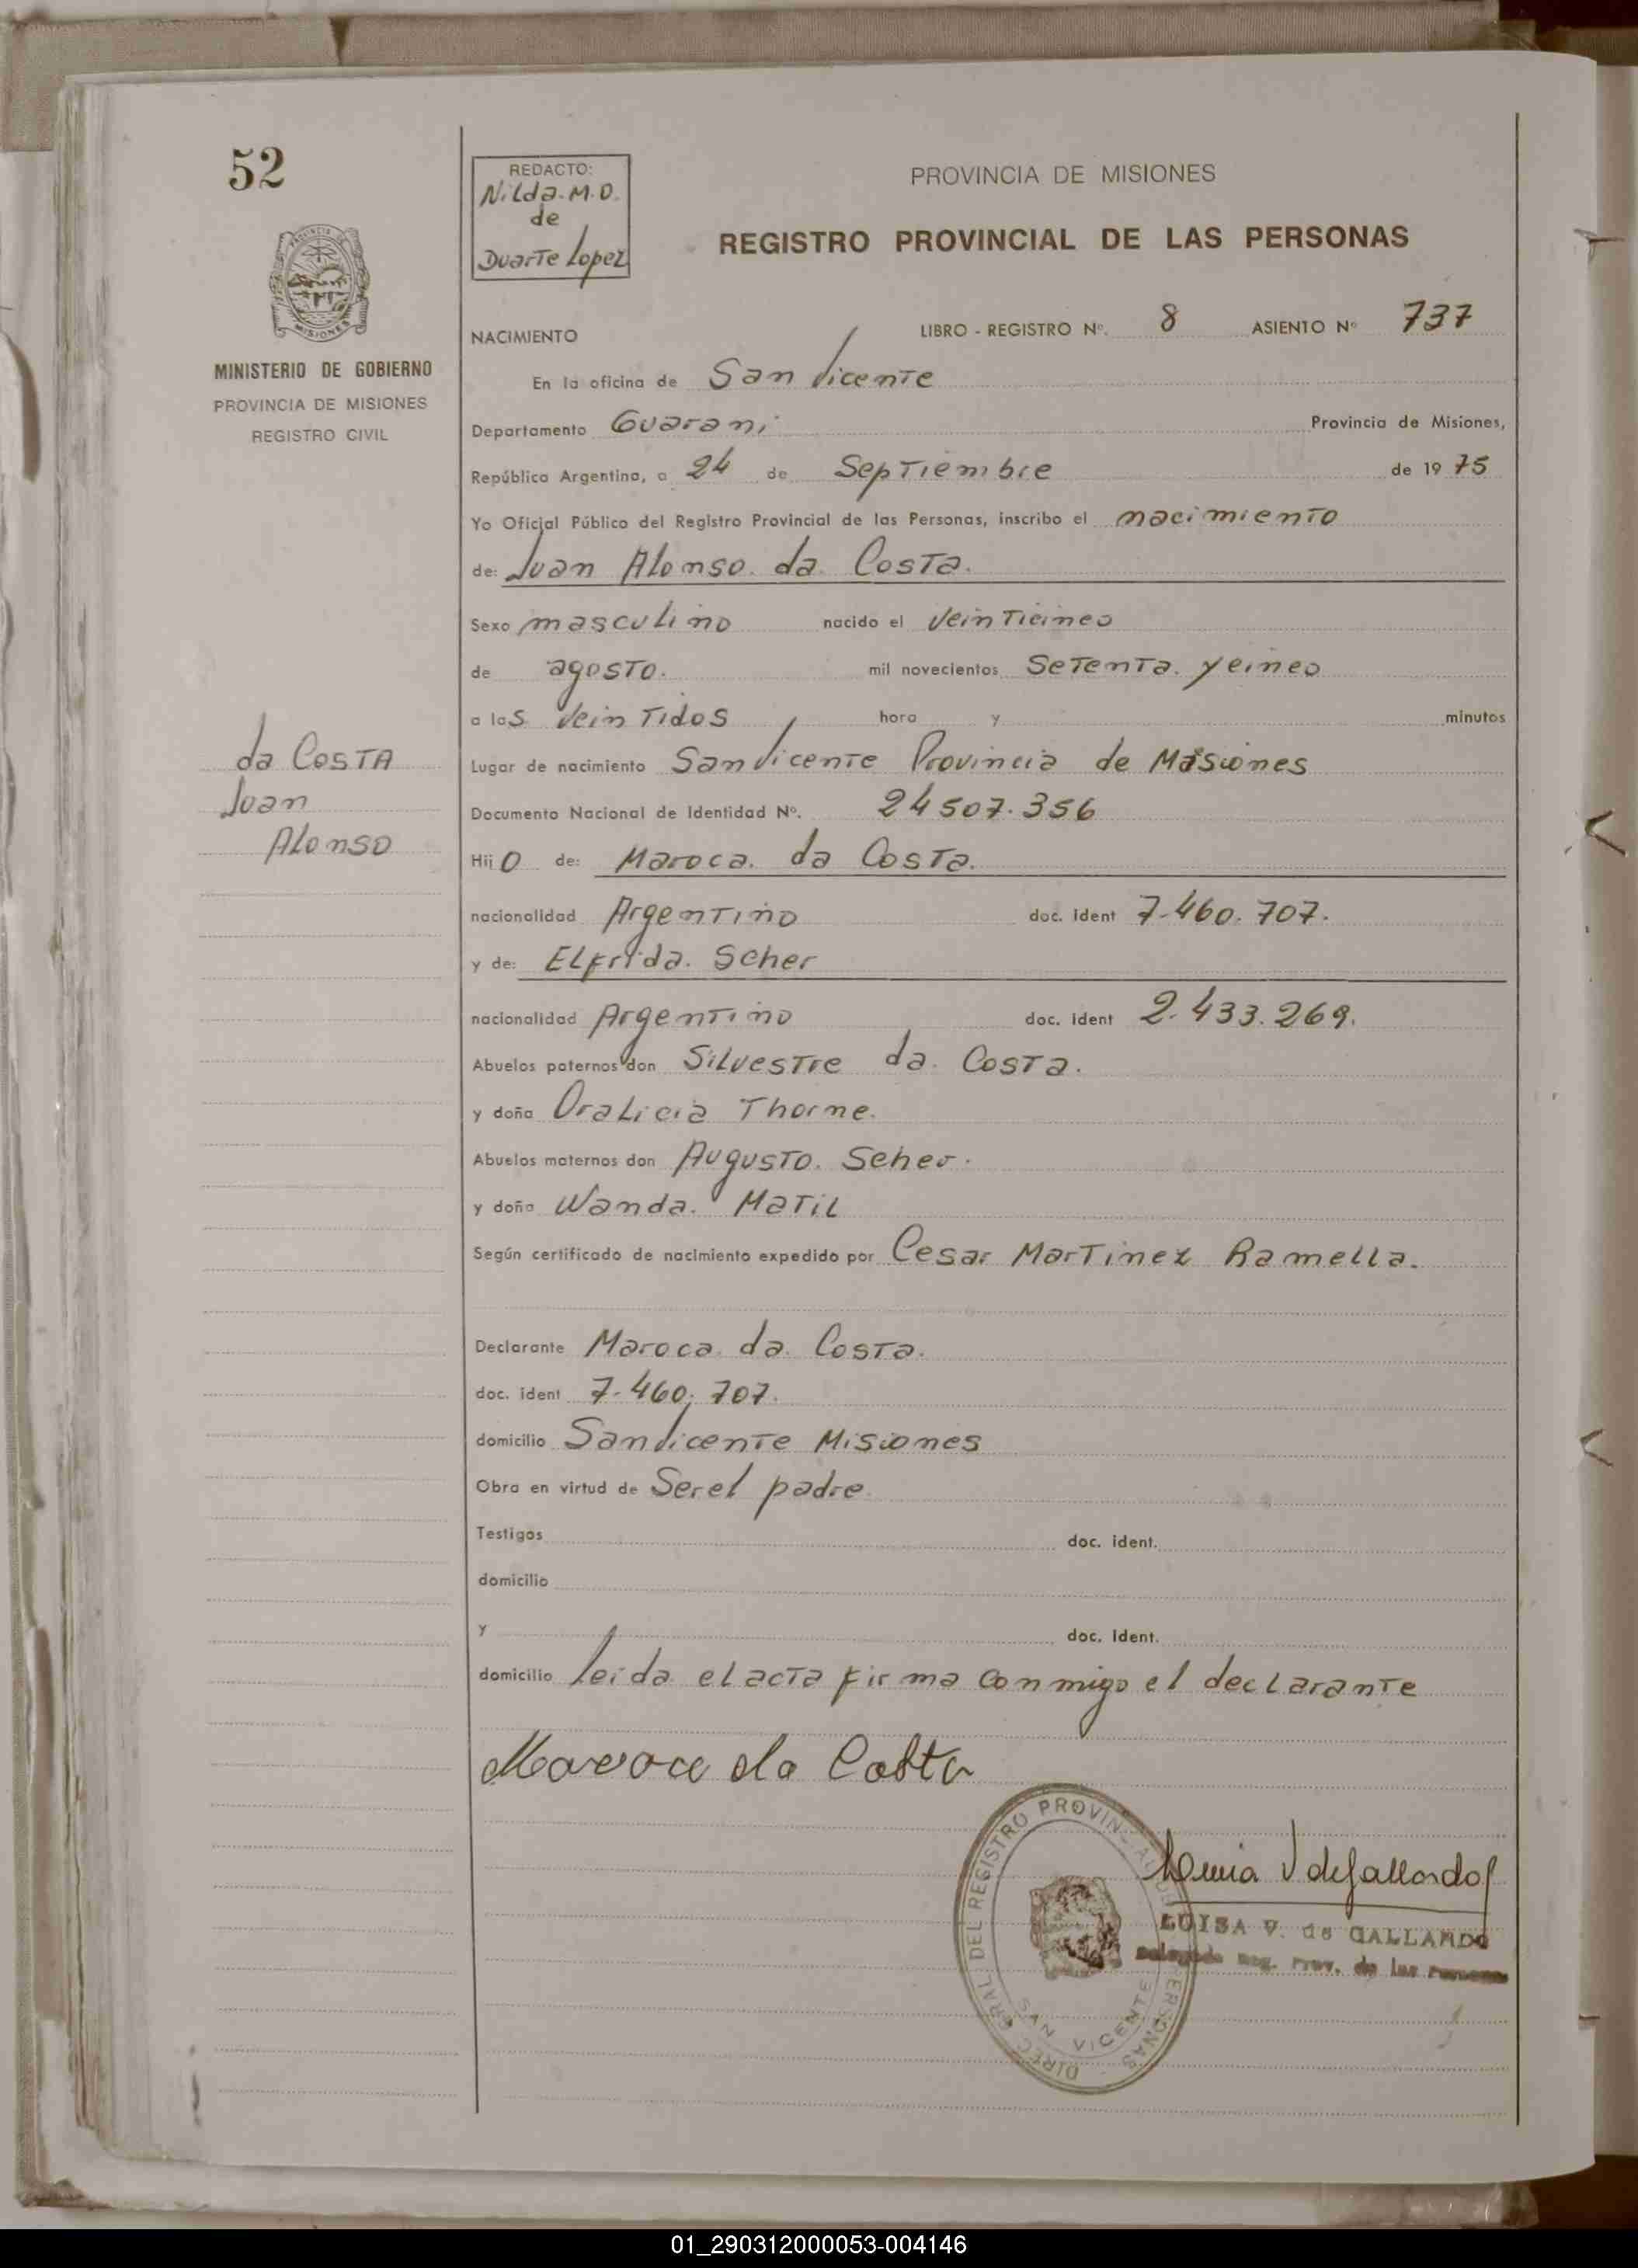 52
REDACTO:
Nilda. M. D.
de
Duarte Lopez
PROVINCIA DE MISIONES
REGISTRO PROVINCIAL DE LAS PERSONAS
MISIONES
MINISTERIO DE GOBIERNO
PROVINCIA DE MISIONES
REGISTRO CIVIL
NACIMIENTO LIBRO - REGISTRO Nº. 8 ASIENTO Nº 737
En la oficina de San Vicente
Departamento Guarani Provincia de Misiones,
República Argentina, a 24 de Septiembre de 1975
Yo Oficial Público del Registro Provincial de las Personas, inscribo el nacimiento
de: Juan Alonso. da. Costa.
Sexo masculino nacido el Veinticinco
de agosto. mil novecientos Setenta. y cinco
a las Veintidos hora y minutos
da Costa
Juan
Alonso
Lugar de nacimiento San Vicente Provincia de Misiones
Documento Nacional de Identidad Nº. 24507.356
Hijo de: Maroca. da Costa.
nacionalidad Argentino doc. ident 7.460.707.
y de: Elfrida. Scher
nacionalidad Argentino doc. ident 2.433.269.
Abuelos paternos don Silvestre da. Costa.
y doña Oralicia Thorne.
Abuelos maternos don Augusto. Scher.
y doña Wanda. Matil
Según certificado de nacimiento expedido por Cesar Martinez Ramella.
Declarante Maroca da. Costa.
doc. ident 7.460.707.
domicilio San Vicente Misiones
Obra en virtud de Ser el padre.
Testigos doc. ident.
domicilio
y doc. ident.
domicilio leida el acta firma conmigo el declarante
Maroca da Costa
DIREC. GRAL DEL REGISTRO PROVINCIAL DE LAS PERSONAS
SAN VICENTE
Luisa V de Gallardo
LUISA V. de GALLARDO
Delegada Reg. Prov. de las Personas
01_290312000053-004146